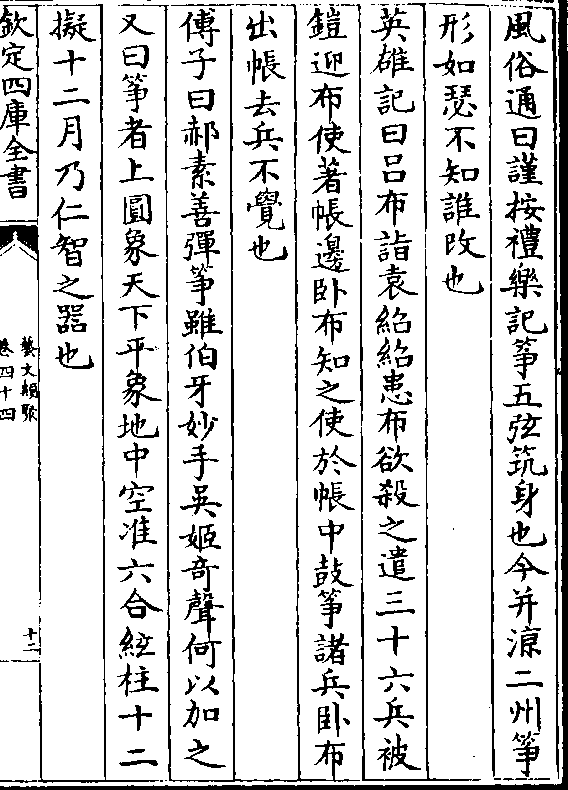 風俗通曰謹按禮樂記箏五弦筑身也今并涼二州箏
形如瑟不知誰改也
英雄記曰呂布詣袁紹紹患布欲殺之遣三十六兵被
鎧迎布使著帳邊卧布知之使於帳中鼓箏諸兵卧布
出帳去兵不覺也
傅子曰郝素善彈箏雖伯牙妙手吳姬奇聲何以加之
又曰箏者上圓象天下平象地中空准六合絃柱十二
擬十二月乃仁智之器也
欽定四庫全書
藝文類聚
卷四十四
十二